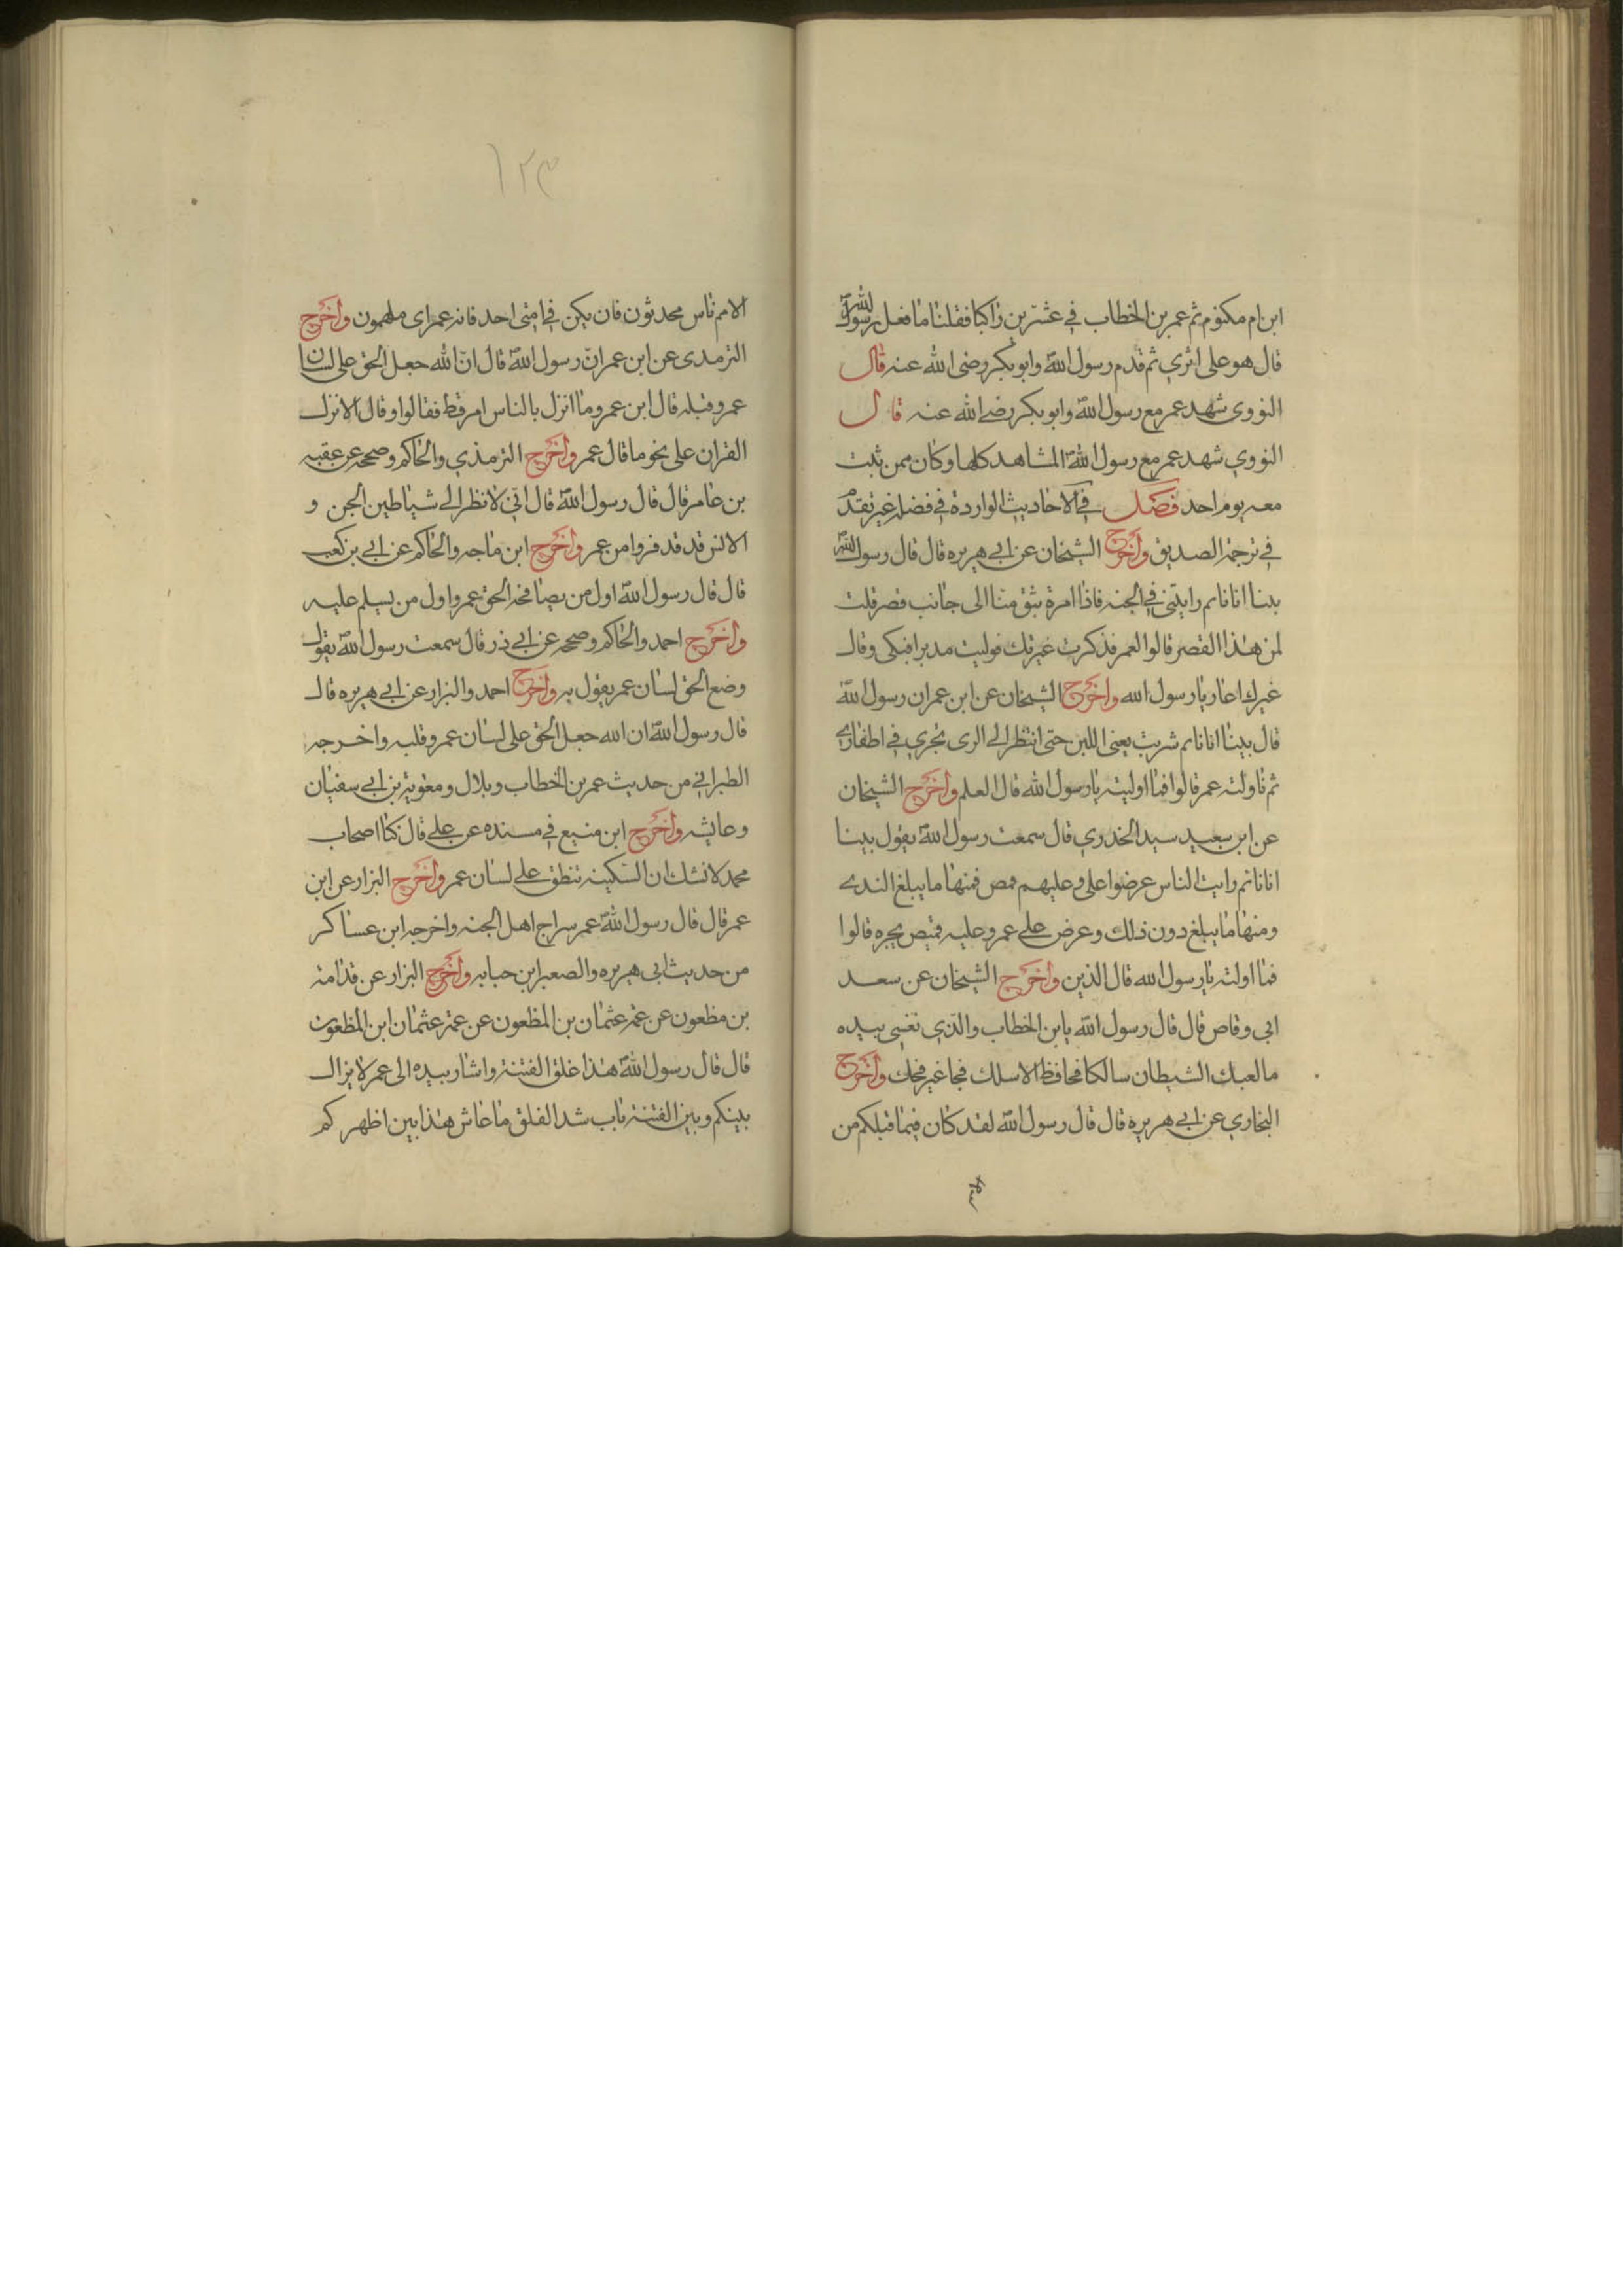 ابن ام مكتوم ثم عمر بن الخطاب في عشرين راكبا فقلنا ما فعل رسول الله
قال هو على اثري ثم قدم رسول الله وابو بكر رضي الله عنه قال
النووي شهد عمر مع رسول الله وابو بكر رضي الله عنه قال
النووي شهد عمر مع رسول الله المشاهد كلها وكان ممن ثبت
معه يوم احد فصل في الاحاديث الواردة في فضله غير تقدم
في ترجمة الصديق واخرج الشيخان عن ابي هريره قال قال رسول الله
بينا انا نايم رايتني في الجنه فاذا امرة تتوضا الى جانب قصر قلت
لمن هذا القصر قالوا لعمر فذكرت غيرتك فوليت مدبرا فبكى وقال
غيرك اغار يا رسول الله واخرج الشيخان عن ابن عمر ان رسول الله
قال بينا انا نايم شربت يعني اللبن حتى انتظر الى الري يجري في اظفاري
ثم ناولته عمر قالوا فما اوليته يا رسول الله قال العلم واخرج الشيخان
عن ابي سعيد سيد الخدري قال سمعت رسول الله يقول بينا
انا نايم رايت الناس عرضوا علي وعليهم قمص فمنها ما يبلغ الندي
ومنها ما يبلغ دون ذلك وعرض علي عمر وعليه قميص يجره قالوا
فما اولته يا رسول الله قال الدين واخرج الشيخان عن سعد
ابي وقاص قال قال رسول الله يا بن الخطاب والذي نفسي بيده
ما لعبك الشيطان سالكا فجا فظ الا سلك فجا غير فجك واخرج
البخاري عن ابي هريره قال قال رسول الله لقد كان فيما قبلكم من
١٢٣
الامم ناس محدثون فان يكن في امتي احد فانه عمر اى ملهمون واخرج
الترمدى عن ابن عمر ان رسول الله قال ان الله جعل الحق على لسان
عمر وقبله قال ابن عمر وما انزل بالناس امر قط فقالوا وقال الا نزل
القران على نحو ما قال عمر واخرج الترمذي والحاكم وصححه عن عقبه
بن عامر قال قال رسول الله قال اني لانظر الى شياطين الجن و
الانس قد قد فروا من عمر واخرج ابن ماجه والحاكم عن ابي بن كعب
قال قال رسول الله اول من يصافحه الحق عمر واول من يسلم عليه
واخرج احمد والحاكم وصححه عن ابي ذر قال سمعت رسول الله يقول
وضع الحق لسان عمر يقول به واخرج احمد والبزار عن ابي هريره قال
قال رسول الله ان الله جعل الحق على لسان عمر وقلبه واخرجه
الطبراني من حديث عمر بن الخطاب وبلال ومعوية بن ابي سفيان
وعايشه واخرج ابن منيع في مسنده عن علي قال كنا اصحاب
محمد لا نشك ان السكينه تنطق على لسان عمر واخرج البزار عن ابن
عمر قال قال رسول الله عمر سراج اهل الجنه واخرجه ابن عساكر
من حديث ابى هريره والصعب ابن حبابه واخرج البزار عن قدامة
بن مظعون عن عمه عثمان بن المظعون عن عمة عثمان ابن المظعون
قال قال رسول الله هذا غلق الفتنة واشار بيده الى عمر لا يزال
بينكم وبين الفتنة باب شد الغلق ما عاش هذا بين اظهركم